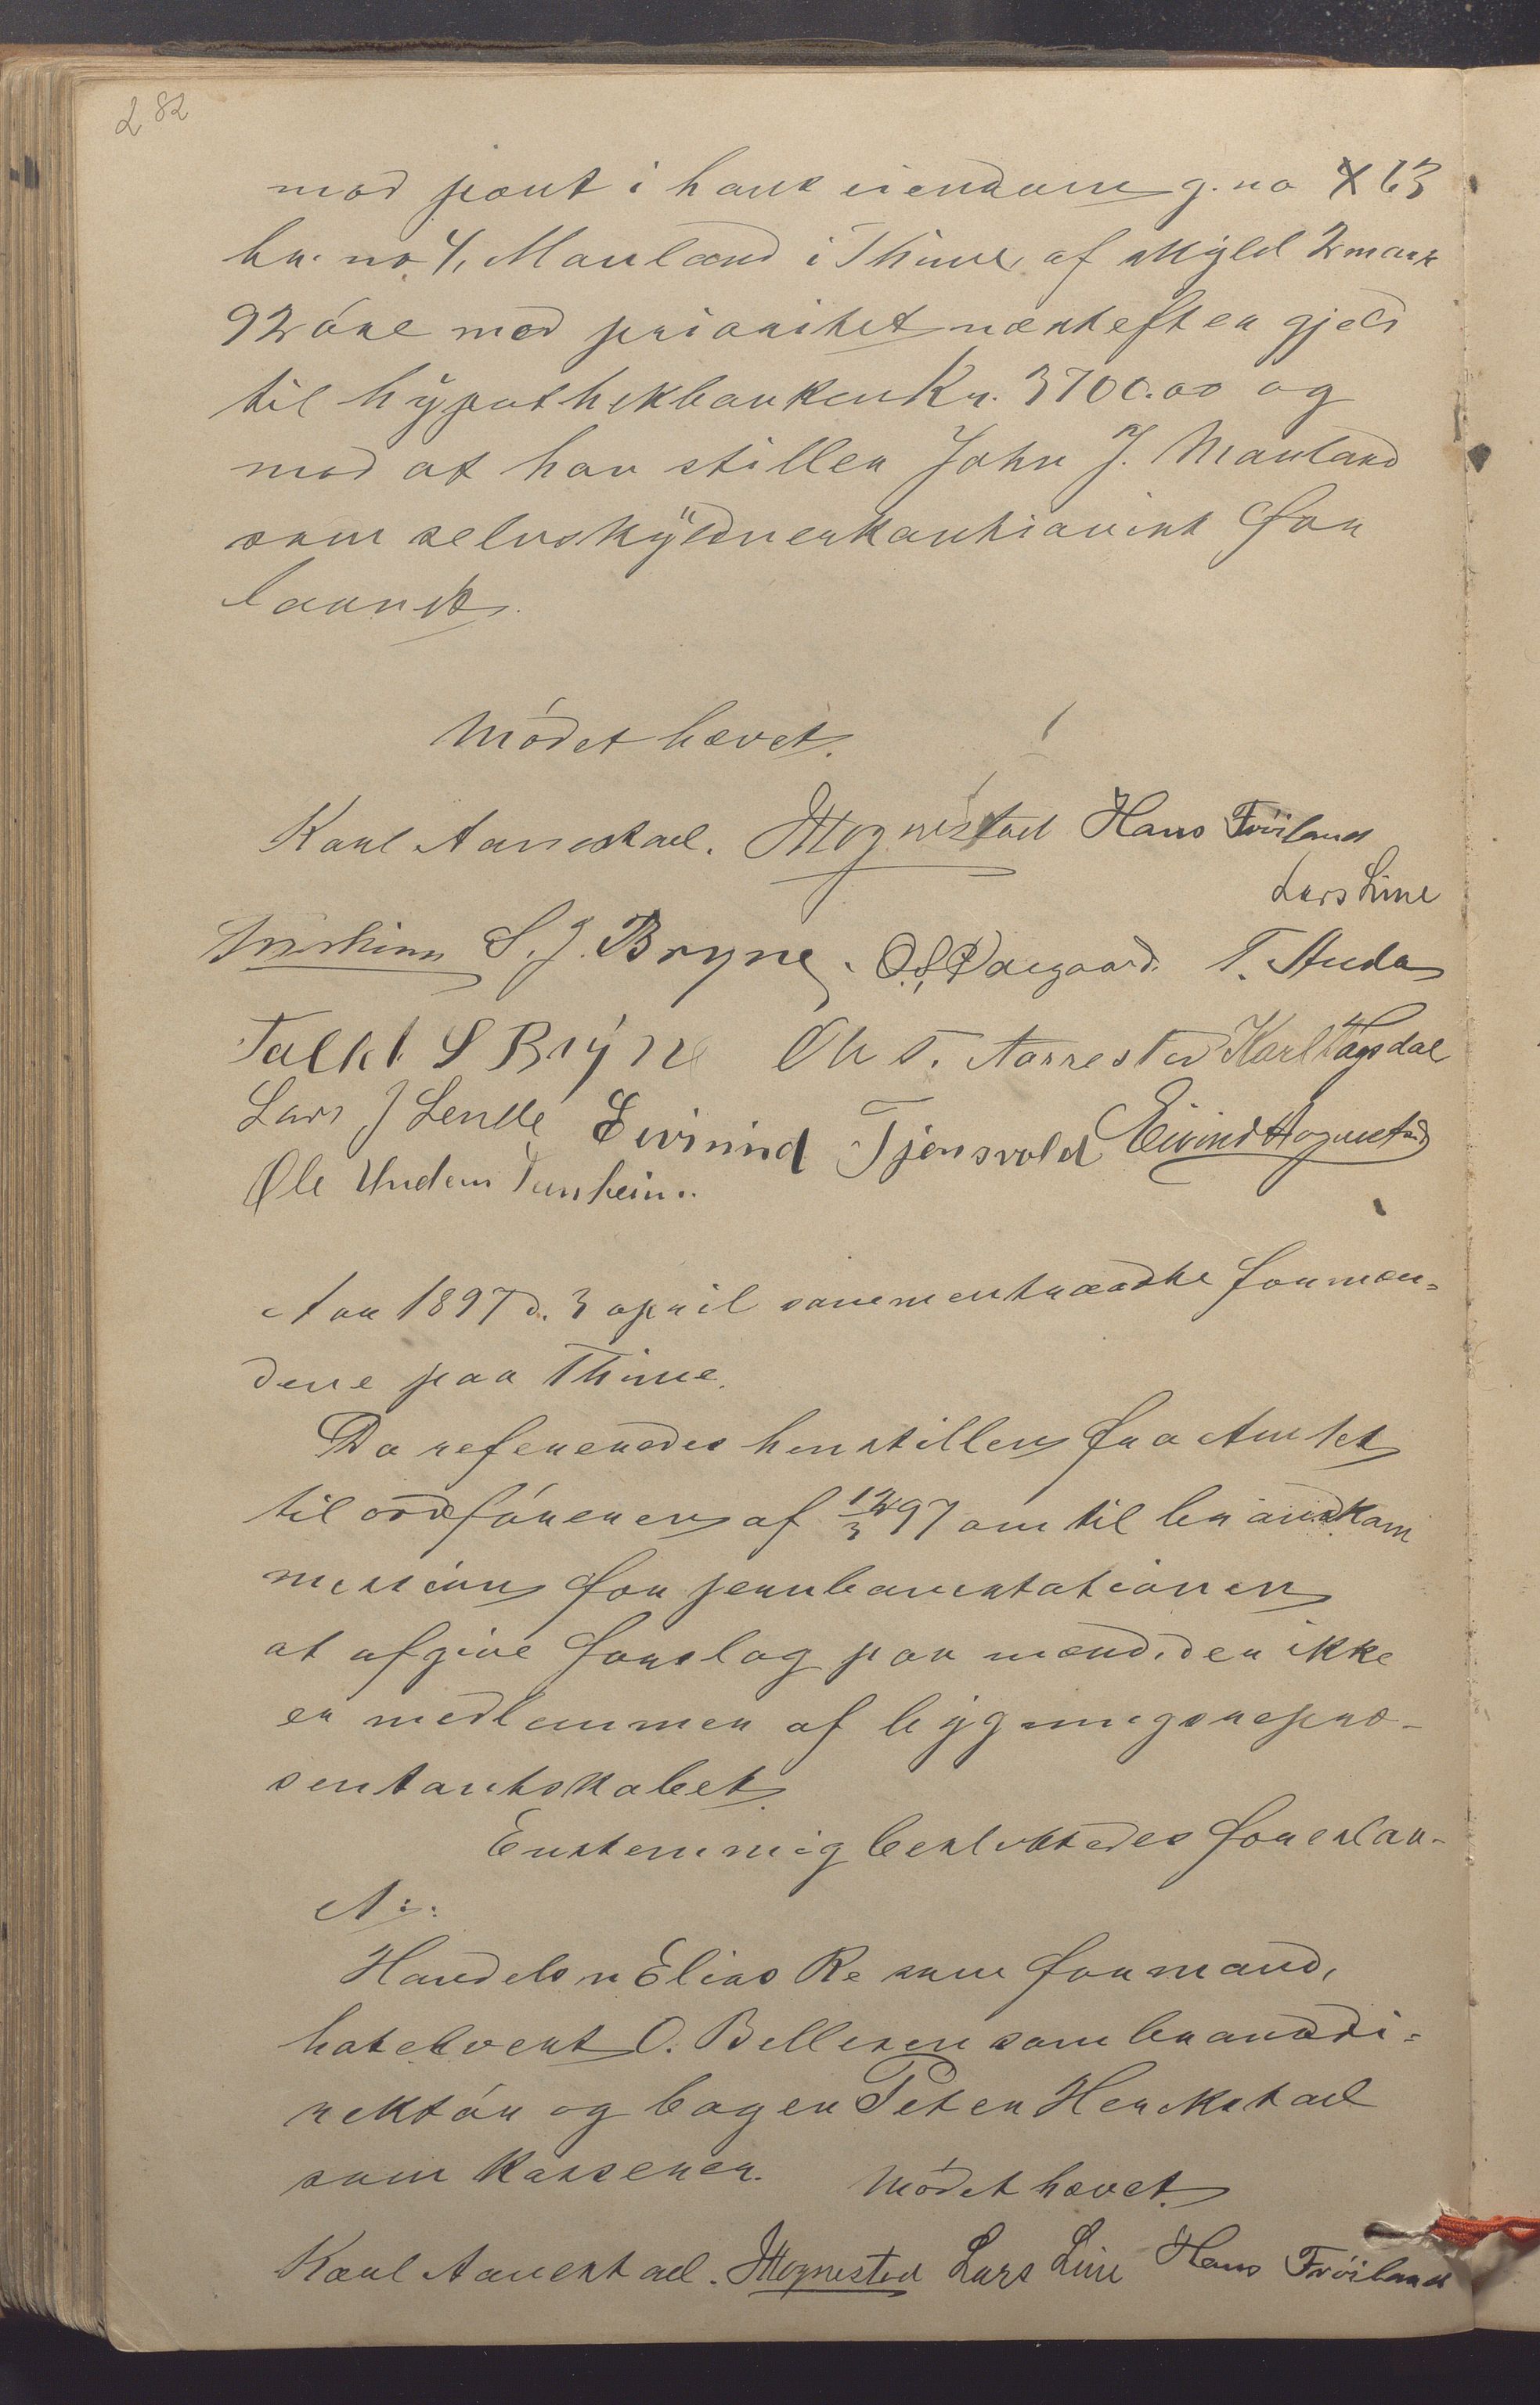 282
mod pant i hans eiendom g. no 63
br. no 4, Mauland i Thime, af skyld 2 mark
92 øre med prioritet næst efter gjeld
til hypothekbanken Kr. 3700.00 og
mod at han stiller John J. Mauland
som selvskyldnerkautionist for
laanet.
Mødet hævet.
Karl Aarrestad. Hognestad Hans Frøiland
Lars Lime
S. J. Bryne. O. S. T. Auda
S Bryne Ole T. Aarrestad Karl
Lars J Lende Eivind Tjensvold Eivind Hognestad
Ole Undem Tunheim.
Aar 1897 d. 3 april sammentraadte formæn-
dene paa Thime.
Da refereredes henstillen fra Amtet
til ordføreren af 12/3 97 om til brandkom
mission for jernbanestationen
at afgive forslag paa mænd, der ikke
er medlemmer af bygningsrepræ-
sentantskabet.
Enstemmig besluttedes foreslaa-
et:
Handelsm Elias Re som formand,
hotelvert O. Bellesen som branddi-
rektør og bager Peter Herikstad
som kasserer. Mødet hævet.
Karl Aarrestad. Hognestad Lars Lime Hans Frøiland